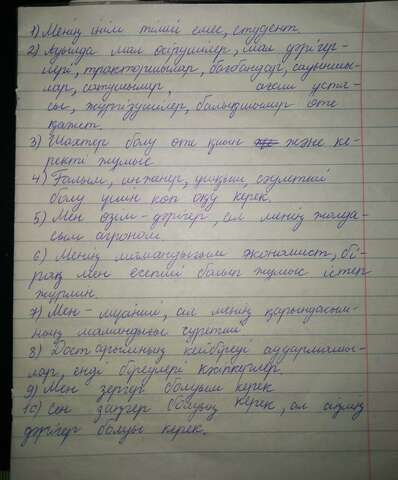 1) Менің інім тілші емес, студент.
2) Ауылда мал бағушылар, мал дәрігер-
лері, тракторшылар, бағбандар, сауыншы-
лар, сатушылар, ағаш уста-
сы, жүргізушілер, балықшылар өте
қажет.
3) Шахтер болу өте қиын және ке-
ректі жұмыс.
4) Ғалым, инженер, сәулетші
болу үшін көп оқу керек.
5) Мен өзім - дәрігер, ал менің жолда-
сым агроном.
6) Менің мамандығым экономист, бі-
рақ мен есепші болып жұмыс істеп
жүрмін.
7) Мен - мұғалім, ал менің қарындасым-
ның мамандығы суретші
8) Достарымның кейбіреуі аудармашы-
лар, енді біреулері кәсіпкерлер.
9) Мен зергер болуым керек
10) Сен заңгер болуың керек, ал сіздің
дәрігер болуы керек.